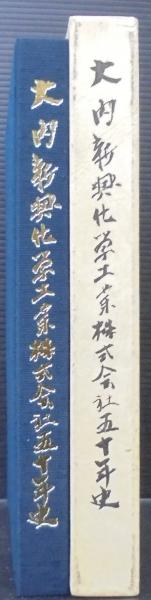 大内新興化学工業株式会社五十年史
大内新興化学工業株式会社五十年史